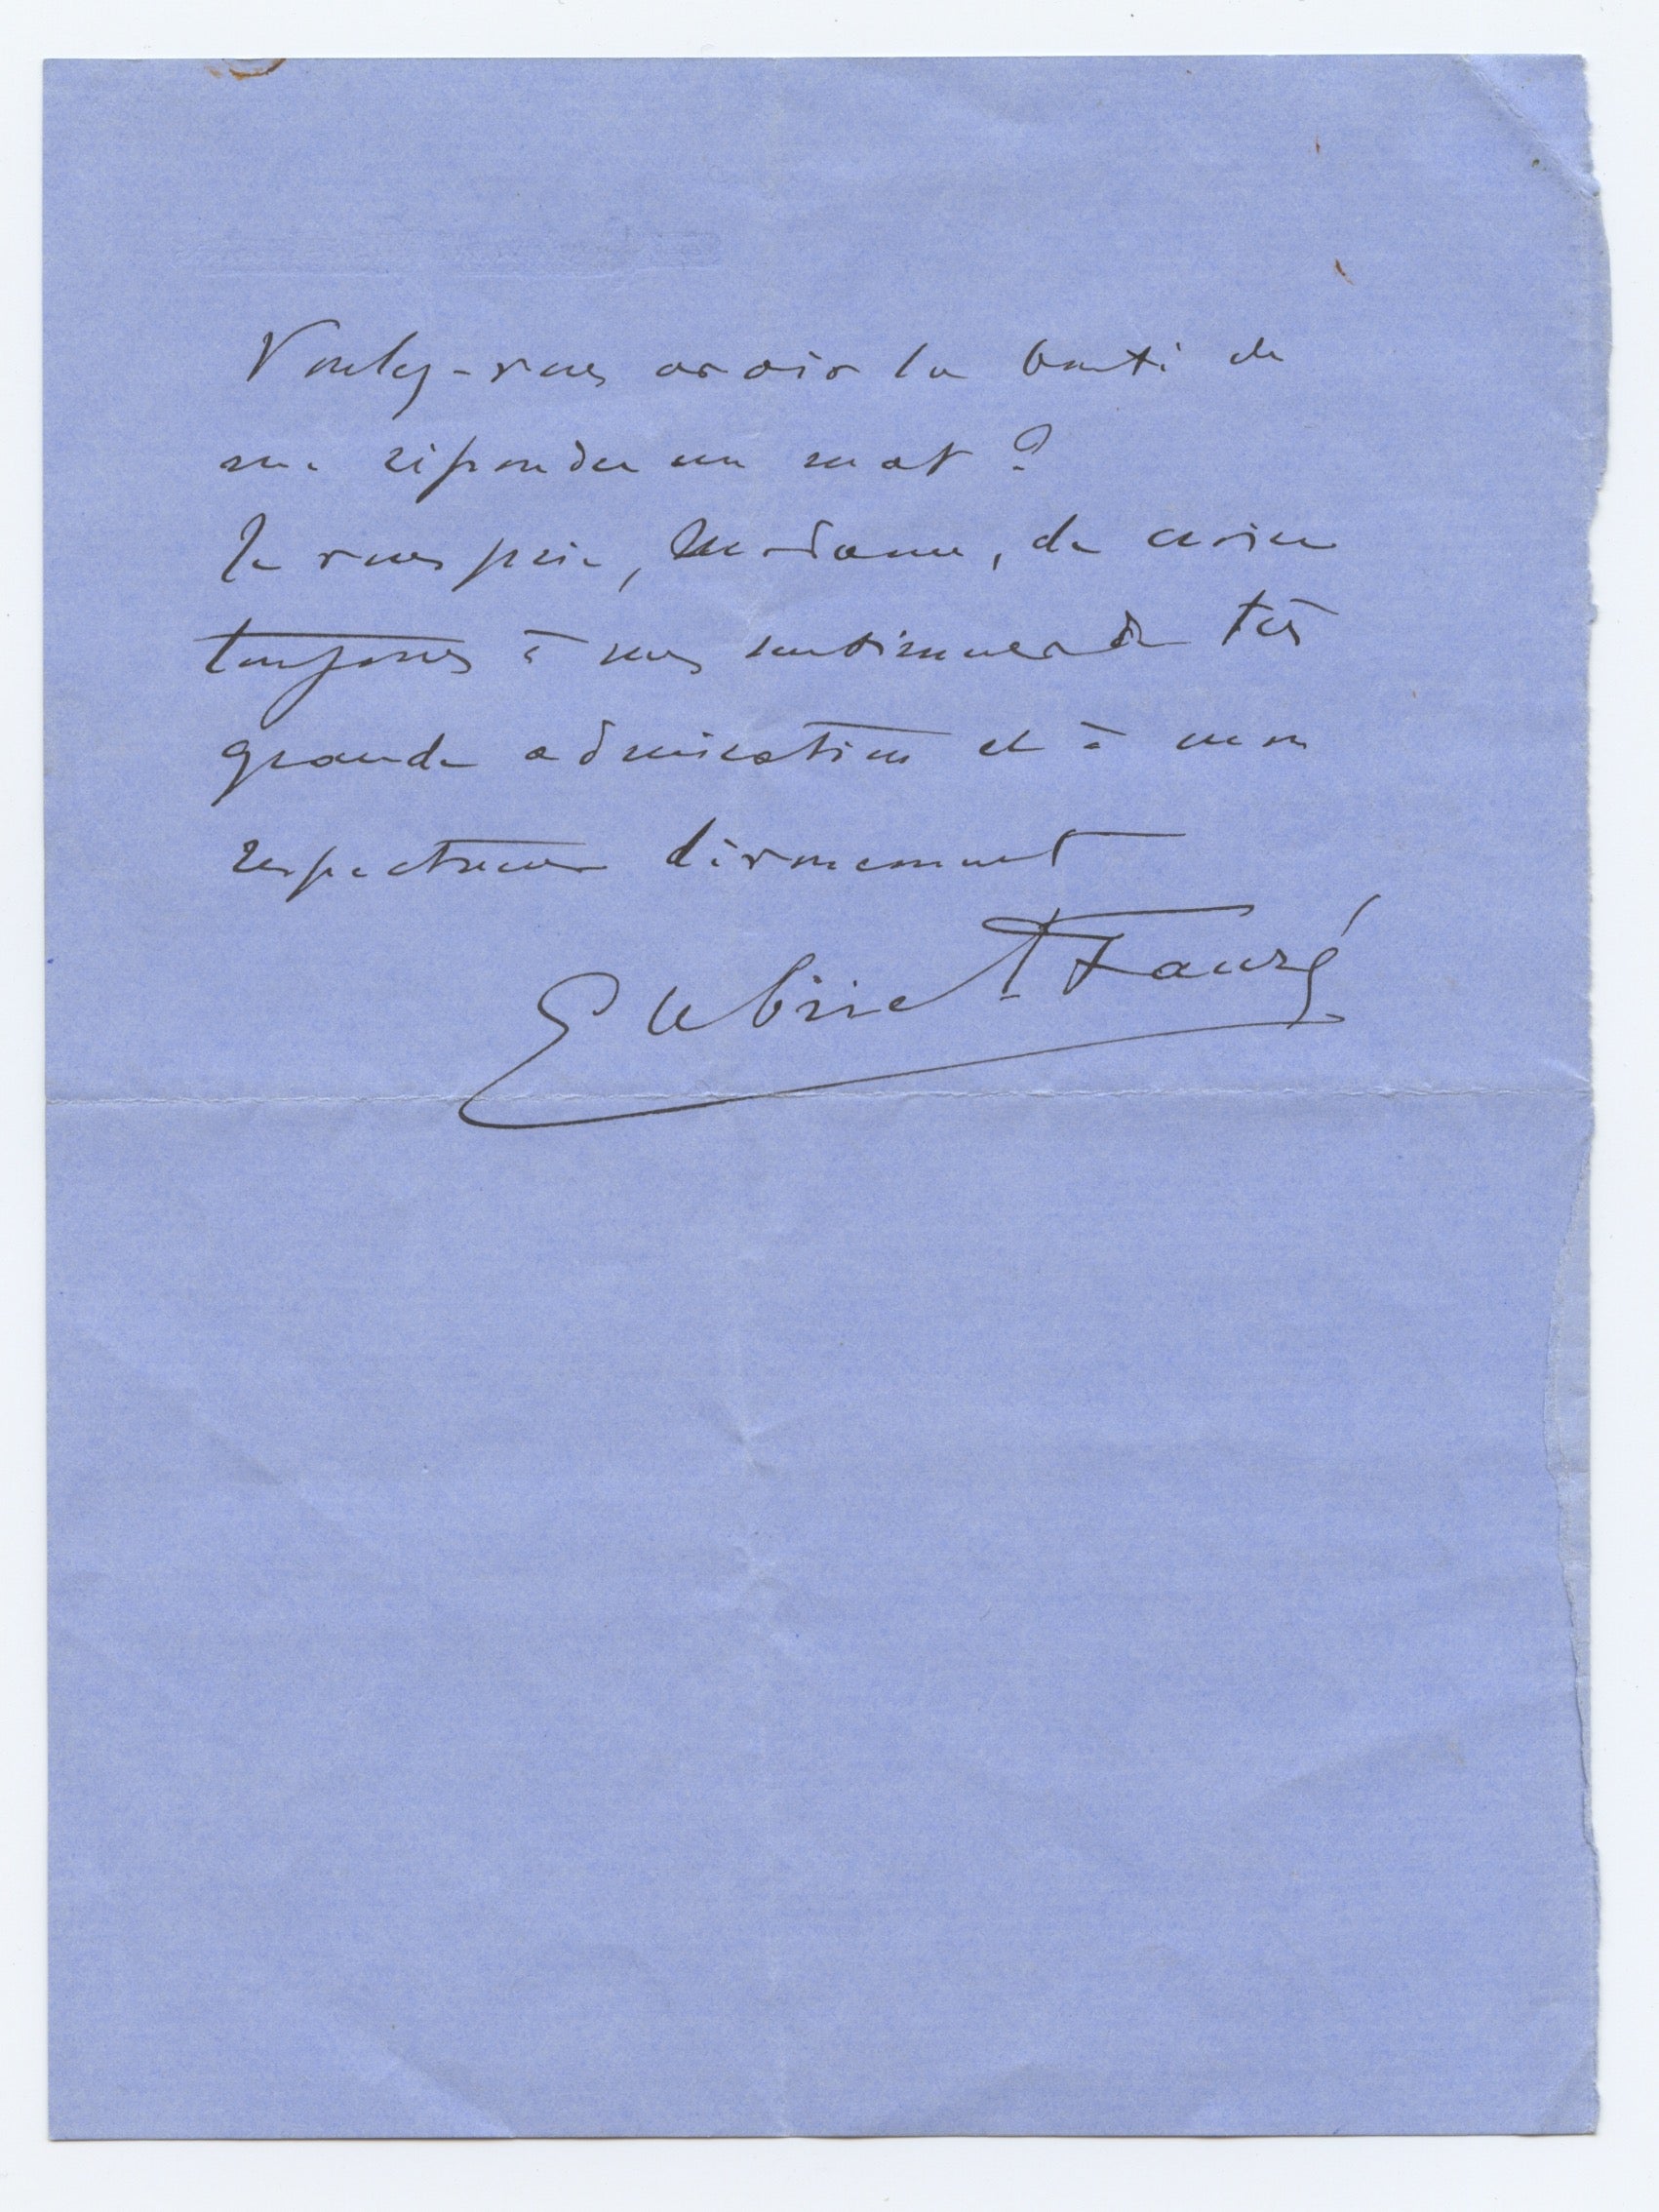 Voulez-vous avoir la bonté de
me répondre un mot ?
Je vous prie, Madame, de croire
toujours à mes sentiments de très
grande admiration et à mon
respectueux dévouement
Gabriel Fauré